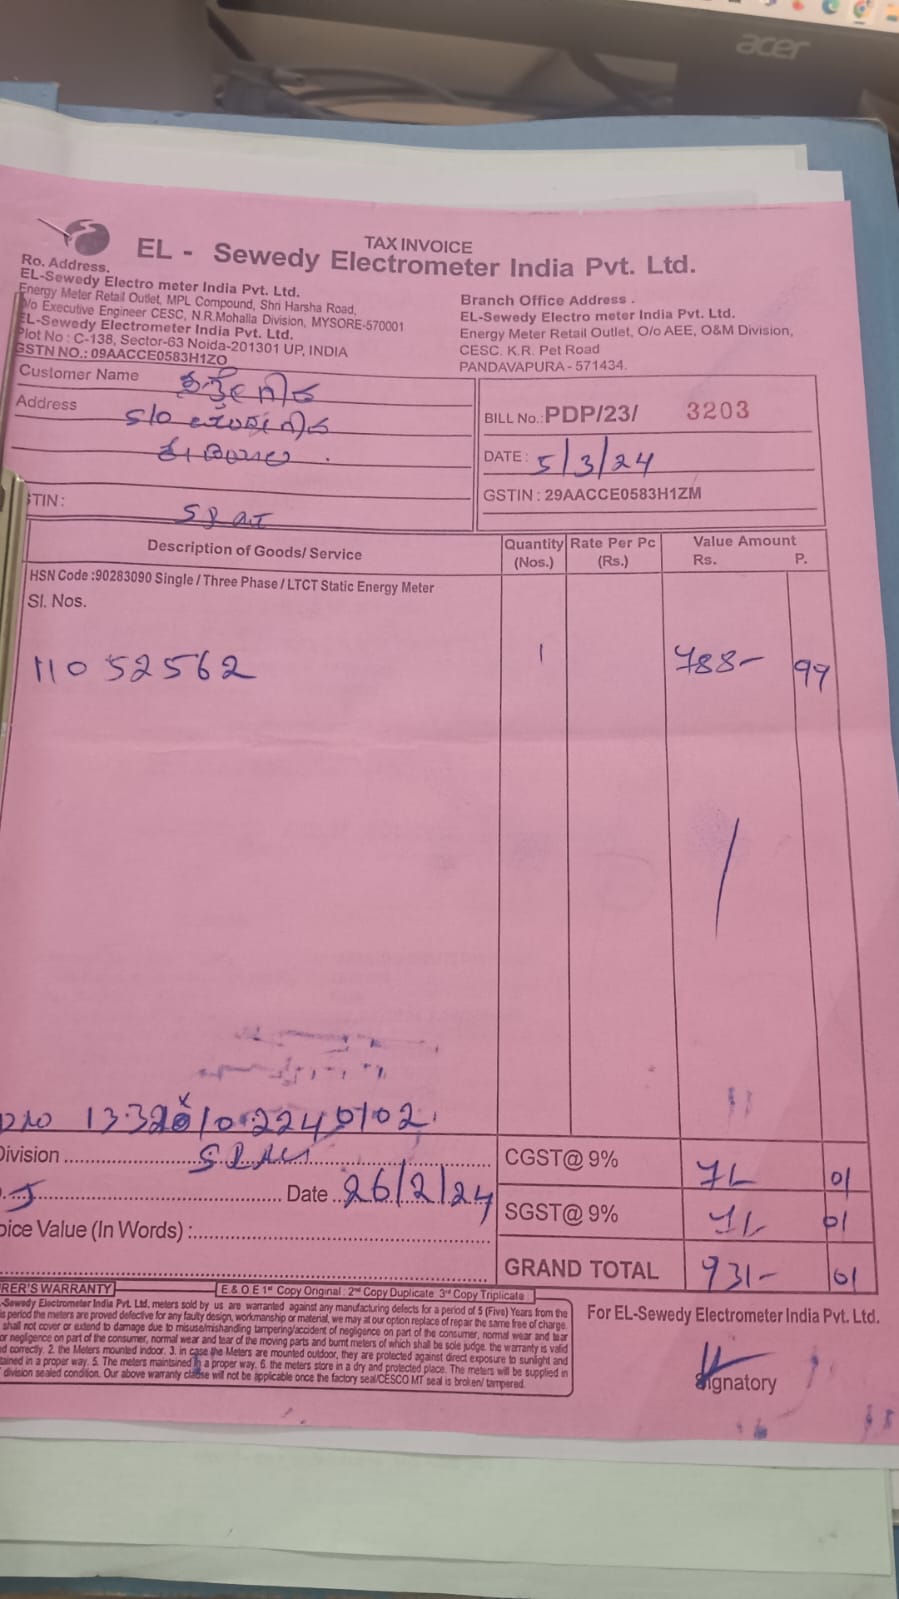 acer
TAX INVOICE
EL - Sewedy Electrometer India Pvt. Ltd.
Ro. Address.
EL-Sewedy Electro meter India Pvt. Ltd.
Energy Meter Retail Outlet, MPL Compound, Shri Harsha Road,
O/o Executive Engineer CESC, N.R.Mohalla Division, MYSORE-570001
EL-Sewedy Electrometer India Pvt. Ltd.
Plot No : C-138, Sector-63 Noida-201301 UP, INDIA
GSTN NO.: 09AACCE0583H1ZO
Branch Office Address .
EL-Sewedy Electro meter India Pvt. Ltd.
Energy Meter Retail Outlet, O/o AEE, O&M Division,
CESC. K.R. Pet Road
PANDAVAPURA - 571434.
Customer Name
Address S/o
TIN :
BILL No.: PDP/23/ 3203
DATE : 5/3/24
GSTIN : 29AACCE0583H1ZM
Description of Goods/ Service Quantity (Nos.) Rate Per Pc (Rs.) Value Amount Rs. P.
HSN Code :90283090 Single / Three Phase / LTCT Static Energy Meter
Sl. Nos.
11052562 1 788- 99
Division
Date 26/2/24
oice Value (In Words) :
CGST@ 9% 71 01
SGST@ 9% 71 01
GRAND TOTAL 931- 01
RER'S WARRANTY E & O E 1st Copy Original : 2nd Copy Duplicate 3rd Copy Triplicate
-Sewedy Electrometer India Pvt. Ltd, meters sold by us are warranted against any manufacturing defects for a period of 5 (Five) Years from the
is period the meters are proved defective for any faulty design, workmanship or material, we may at our option replace of repair the same free of charge.
shall not cover or extend to damage due to misuse/mishanding tampering/accident of negligence on part of the consumer, normal wear and tear
or negligence on part of the consumer, normal wear and tear of the moving parts and burnt meters of which shall be sole judge. the warranty is valid
d correctly. 2. the Meters mounted indoor. 3. in case the Meters are mounted outdoor, they are protected against direct exposure to sunlight and
tained in a proper way. 5. The meters maintsined in a proper way. 6. the meters store in a dry and protected place. The meters will be supplied in
division sealed condition. Our above warranty clause will not be applicable once the factory seal/CESCO MT seal is broken/ tampered.
For EL-Sewedy Electrometer India Pvt. Ltd.
Signatory